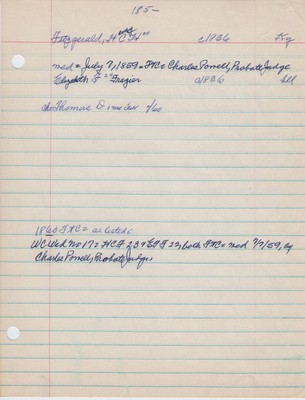 185-
Fitzgerald, H C c1836 Ky
med = July 7, 1859 = FXC = Charles Powell, Probate Judge
Elizabeth F Frazier c1836 Ill
ch Thomas D 1 mo Ter 6/60
1860 FXC = as listed:
WC Wed No 17 = HCF 23 & EFF 23, both FXC = med 7/7/59, by
Charles Powell, Probate Judge.